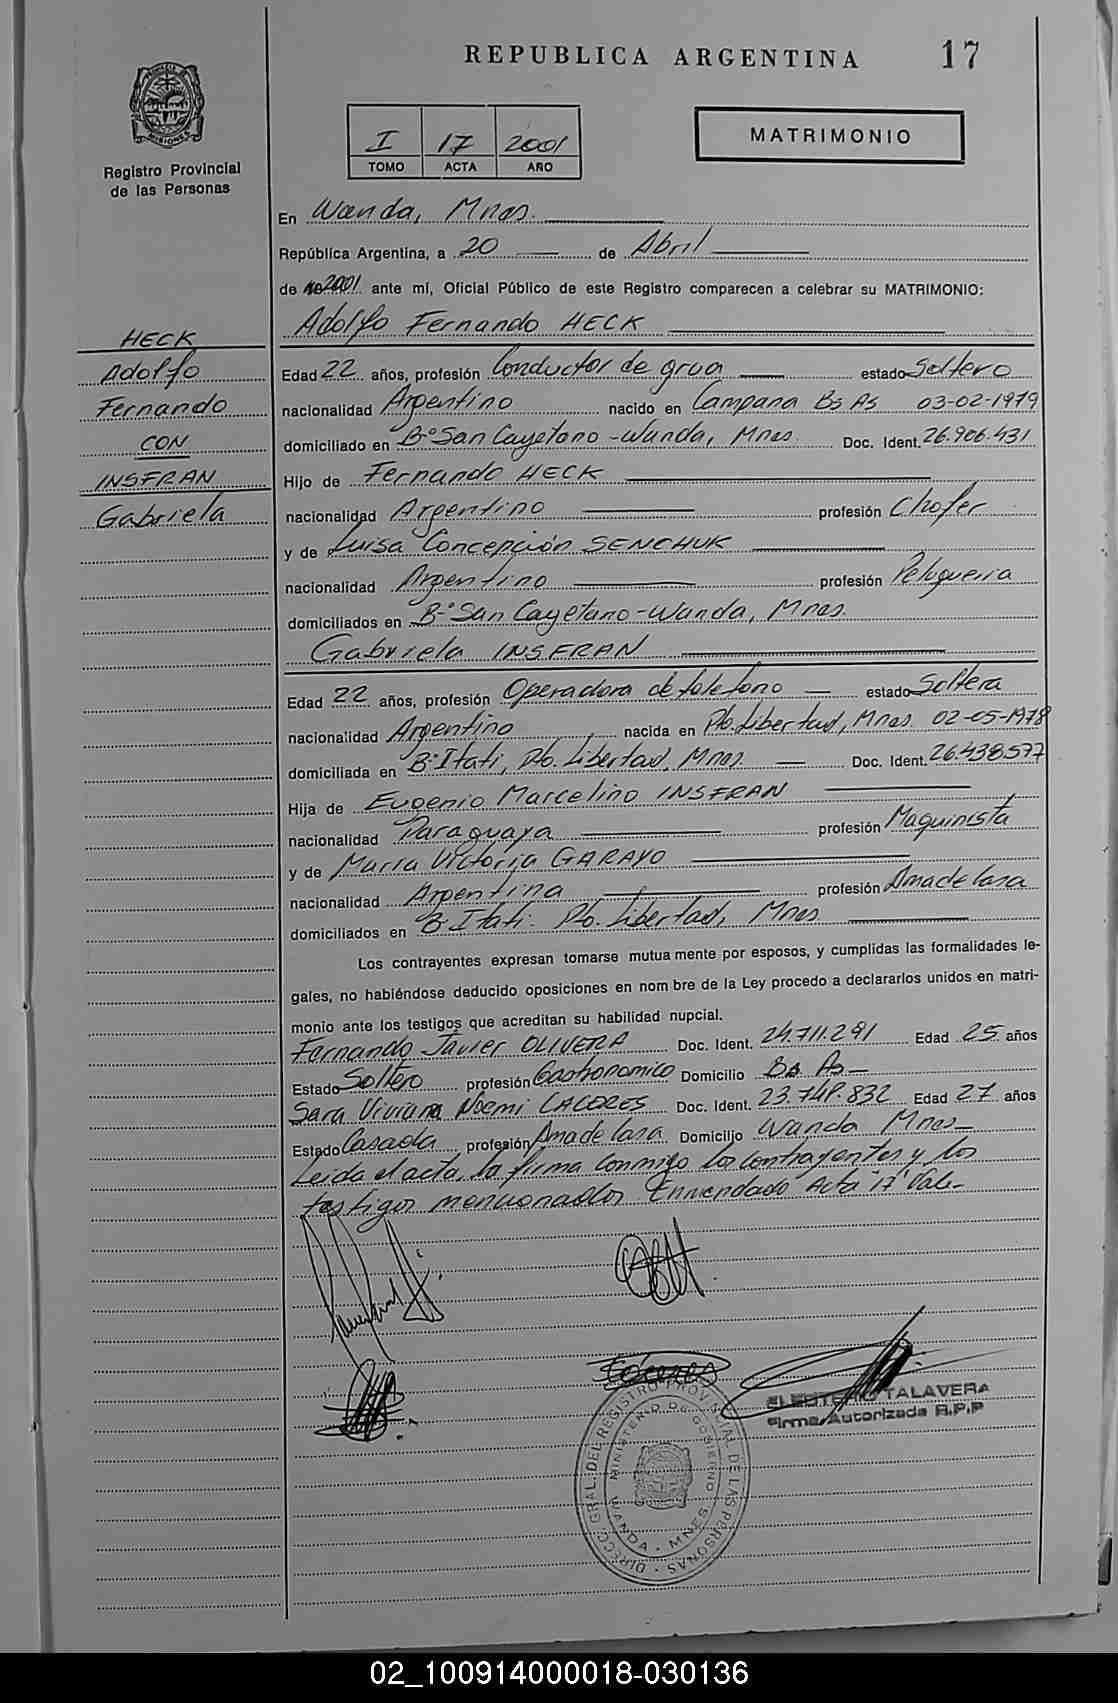 REPUBLICA ARGENTINA 17
MISIONES
Registro Provincial
de las Personas
I 17 2001
TOMO ACTA AÑO
MATRIMONIO
En Wanda, Mnes.
República Argentina, a 20 de Abril
de 2001 ante mí, Oficial Público de este Registro comparecen a celebrar su MATRIMONIO:
Adolfo Fernando HECK
HECK
Adolfo
Fernando
CON
INSFRAN
Gabriela
Edad 22 años, profesión Conductor de grua estado Soltero
nacionalidad Argentino nacido en Campana Bs As 03-02-1979
domiciliado en B-º San Cayetano - Wanda, Mnes. Doc. Ident. 26.906.431
Hijo de Fernando HECK
nacionalidad Argentino profesión Chofer
y de Luisa Concepción SENCHUK
nacionalidad Argentino profesión Peluqueria
domiciliados en B-º San Cayetano - Wanda, Mnes.
Gabriela INSFRAN
Edad 22 años, profesión Operadora de telefono estado Soltera
nacionalidad Argentino nacida en Pto. Libertad, Mnes. 02-05-1978
domiciliada en B-º Itati, Pto. Libertad, Mnes. Doc. Ident. 26.438.577
Hija de Eugenio Marcelino INSFRAN
nacionalidad Paraguaya profesión Maquinista
y de Maria Victoria GARAYO
nacionalidad Argentina profesión Ama de Casa
domiciliados en B-Itati. Pto. Libertad, Mnes
Los contrayentes expresan tomarse mutua mente por esposos, y cumplidas las formalidades le-
gales, no habiéndose deducido oposiciones en nom bre de la Ley procedo a declararlos unidos en matri-
monio ante los testigos que acreditan su habilidad nupcial.
Fernando Javier OLIVERA Doc. Ident. 24.711.291 Edad 25 años
Estado Soltero profesión Gastronomico Domicilio Bs As
Sara Viviana Noemi CACERES Doc. Ident. 23.748.832 Edad 27 años
Estado Casada profesión Ama de Casa Domicilio Wanda Mnes
Leida el acta, la firma conmigo los contrayentes y los
testigos mencionados Enmendado Acta "17" Vale-
Caceres
ELEUTERIO TALAVERA
Firma Autorizada R.P.P
DIRECC. GRAL. DEL REGISTRO PROVINCIAL DE LAS PERSONAS
MINISTERIO DE GOBIERNO
WANDA - MNES.
02_100914000018-030136